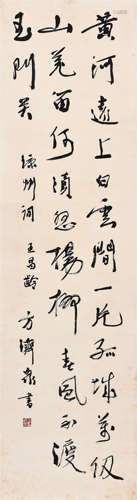 黄河遠上白雲間一片孤城萬仞
山羌笛何須怨楊柳春風不渡
玉門关 涼州詞 王昌齡 方濟衆書